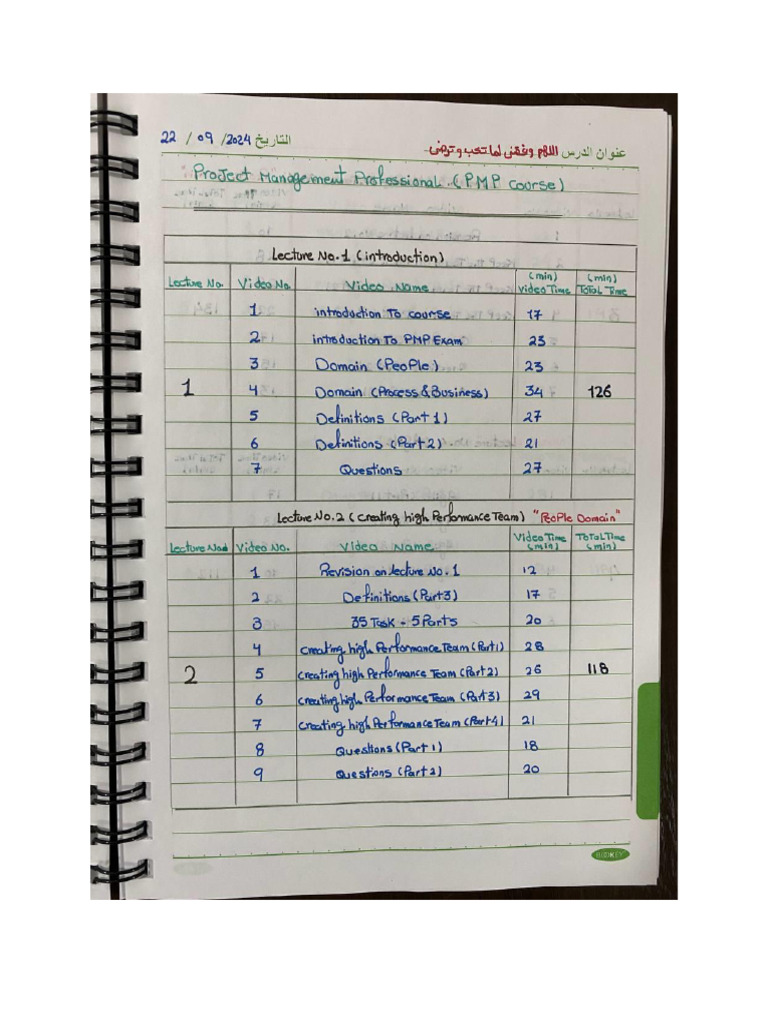 عنوان الدرس اللهم وفقني لما تحب وترضى. التاريخ 22 / 09 / 2024
"Project Management Professional. (PMP Course)
Lecture No.1 (introduction)
Lecture No. Video No. Video Name (min) Video Time (min) Total Time
1 introduction To course 17
2 introduction To PMP Exam 23
3 Domain (People) 23
1 4 Domain (Process & Business) 34 126
5 Definitions (Part 1) 27
6 Definitions (Part 2) 21
7 Questions 27
Lecture No.2 (creating high Performance Team) "People Domain"
Lecture No. Video No. Video Name Video Time (min) Total Time (min)
1 Revision on lecture No.1 12
2 Definitions (Part 3) 17
3 35 Task - 5 Parts 20
4 creating high Performance Team (Part 1) 28
2 5 creating high Performance Team (Part 2) 26 118
6 creating high Performance Team (Part 3) 29
7 creating high Performance Team (Part 4) 21
8 Questions (Part 1) 18
9 Questions (Part 2) 20